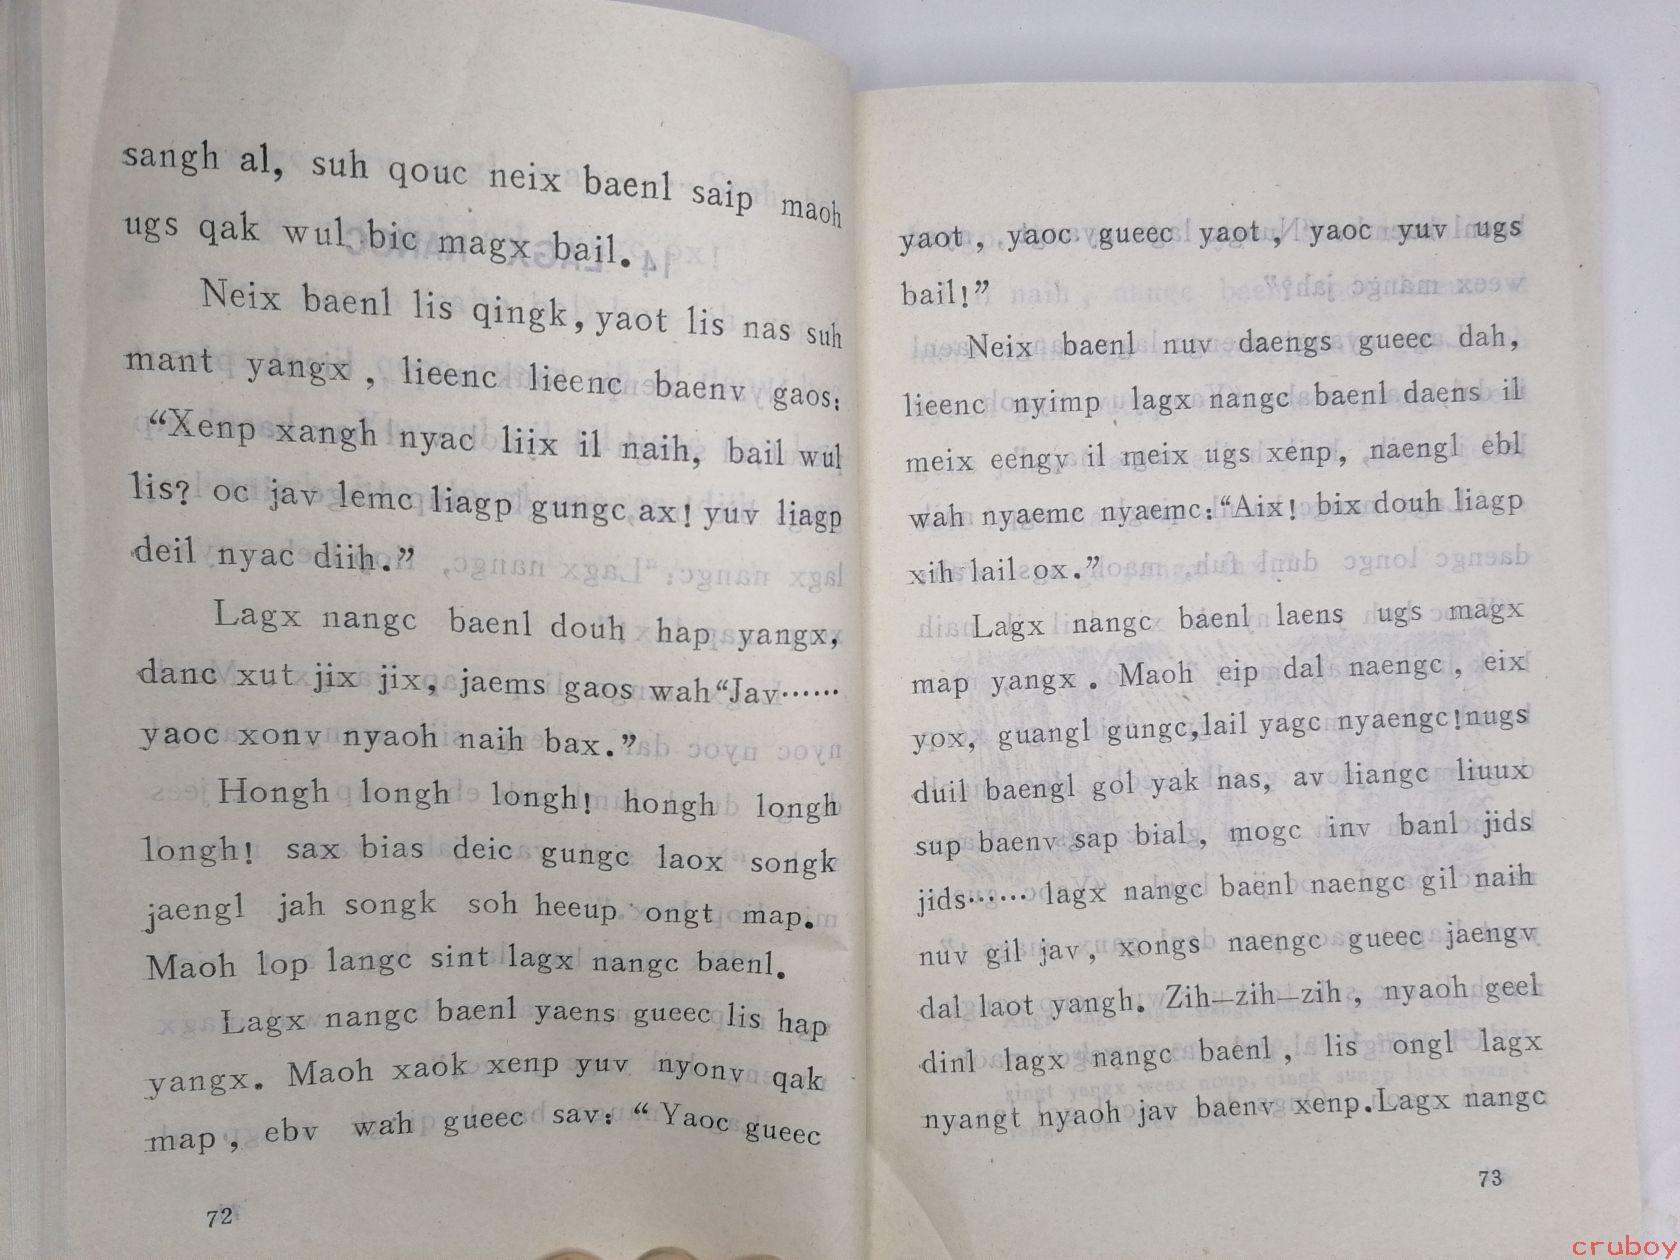 sangh al, suh qouc neix baenl saip maoh
ugs qak wul bic magx bail.
Neix baenl lis qingk, yaot lis nas suh
mant yangx, lieenc lieenc baenv gaos:
“Xenp xangh nyac liix il naih, bail wul
lis? oc jav lemc liagp gungc ax! yuv liagp
deil nyac diih.”
Lagx nangc baenl douh hap yangx,
danc xut jix jix, jaems gaos wah“Jav……
yaoc xonv nyaoh naih bax.”
Hongh longh longh! hongh longh
longh! sax bias deic gungc laox songk
jaengl jah songk soh heeup ongt map.
Maoh lop langc sint lagx nangc baenl.
Lagx nangc baenl yaens gueec lis hap
yangx. Maoh xaok xenp yuv nyonv qak
map, ebv wah gueec sav: “Yaoc gueec
72
yaot, yaoc gueec yaot, yaoc yuv ugs
bail!”
Neix baenl nuv daengs gueec dah,
lieenc nyimp lagx nangc baenl daens il
meix eengv il meix ugs xenp, naengl ebl
wah nyaemc nyaemc:“Aix! bix douh liagp
xih lail ox.”
Lagx nangc baenl laens ugs magx
map yangx. Maoh eip dal naengc, eix
yox, guangl gungc,lail yagc nyaengc!nugs
duil baengl gol yak nas, av liangc liuux
sup baenv sap bial, mogc inv banl jids
jids…… lagx nangc baenl naengc gil naih
nuv gil jav, xongs naengc gueec jaengv
dal laot yangh. Zih—zih—zih, nyaoh geel
dinl lagx nangc baenl, lis ongl lagx
nyangt nyaoh jav baenv xenp.Lagx nangc
73
cruboy